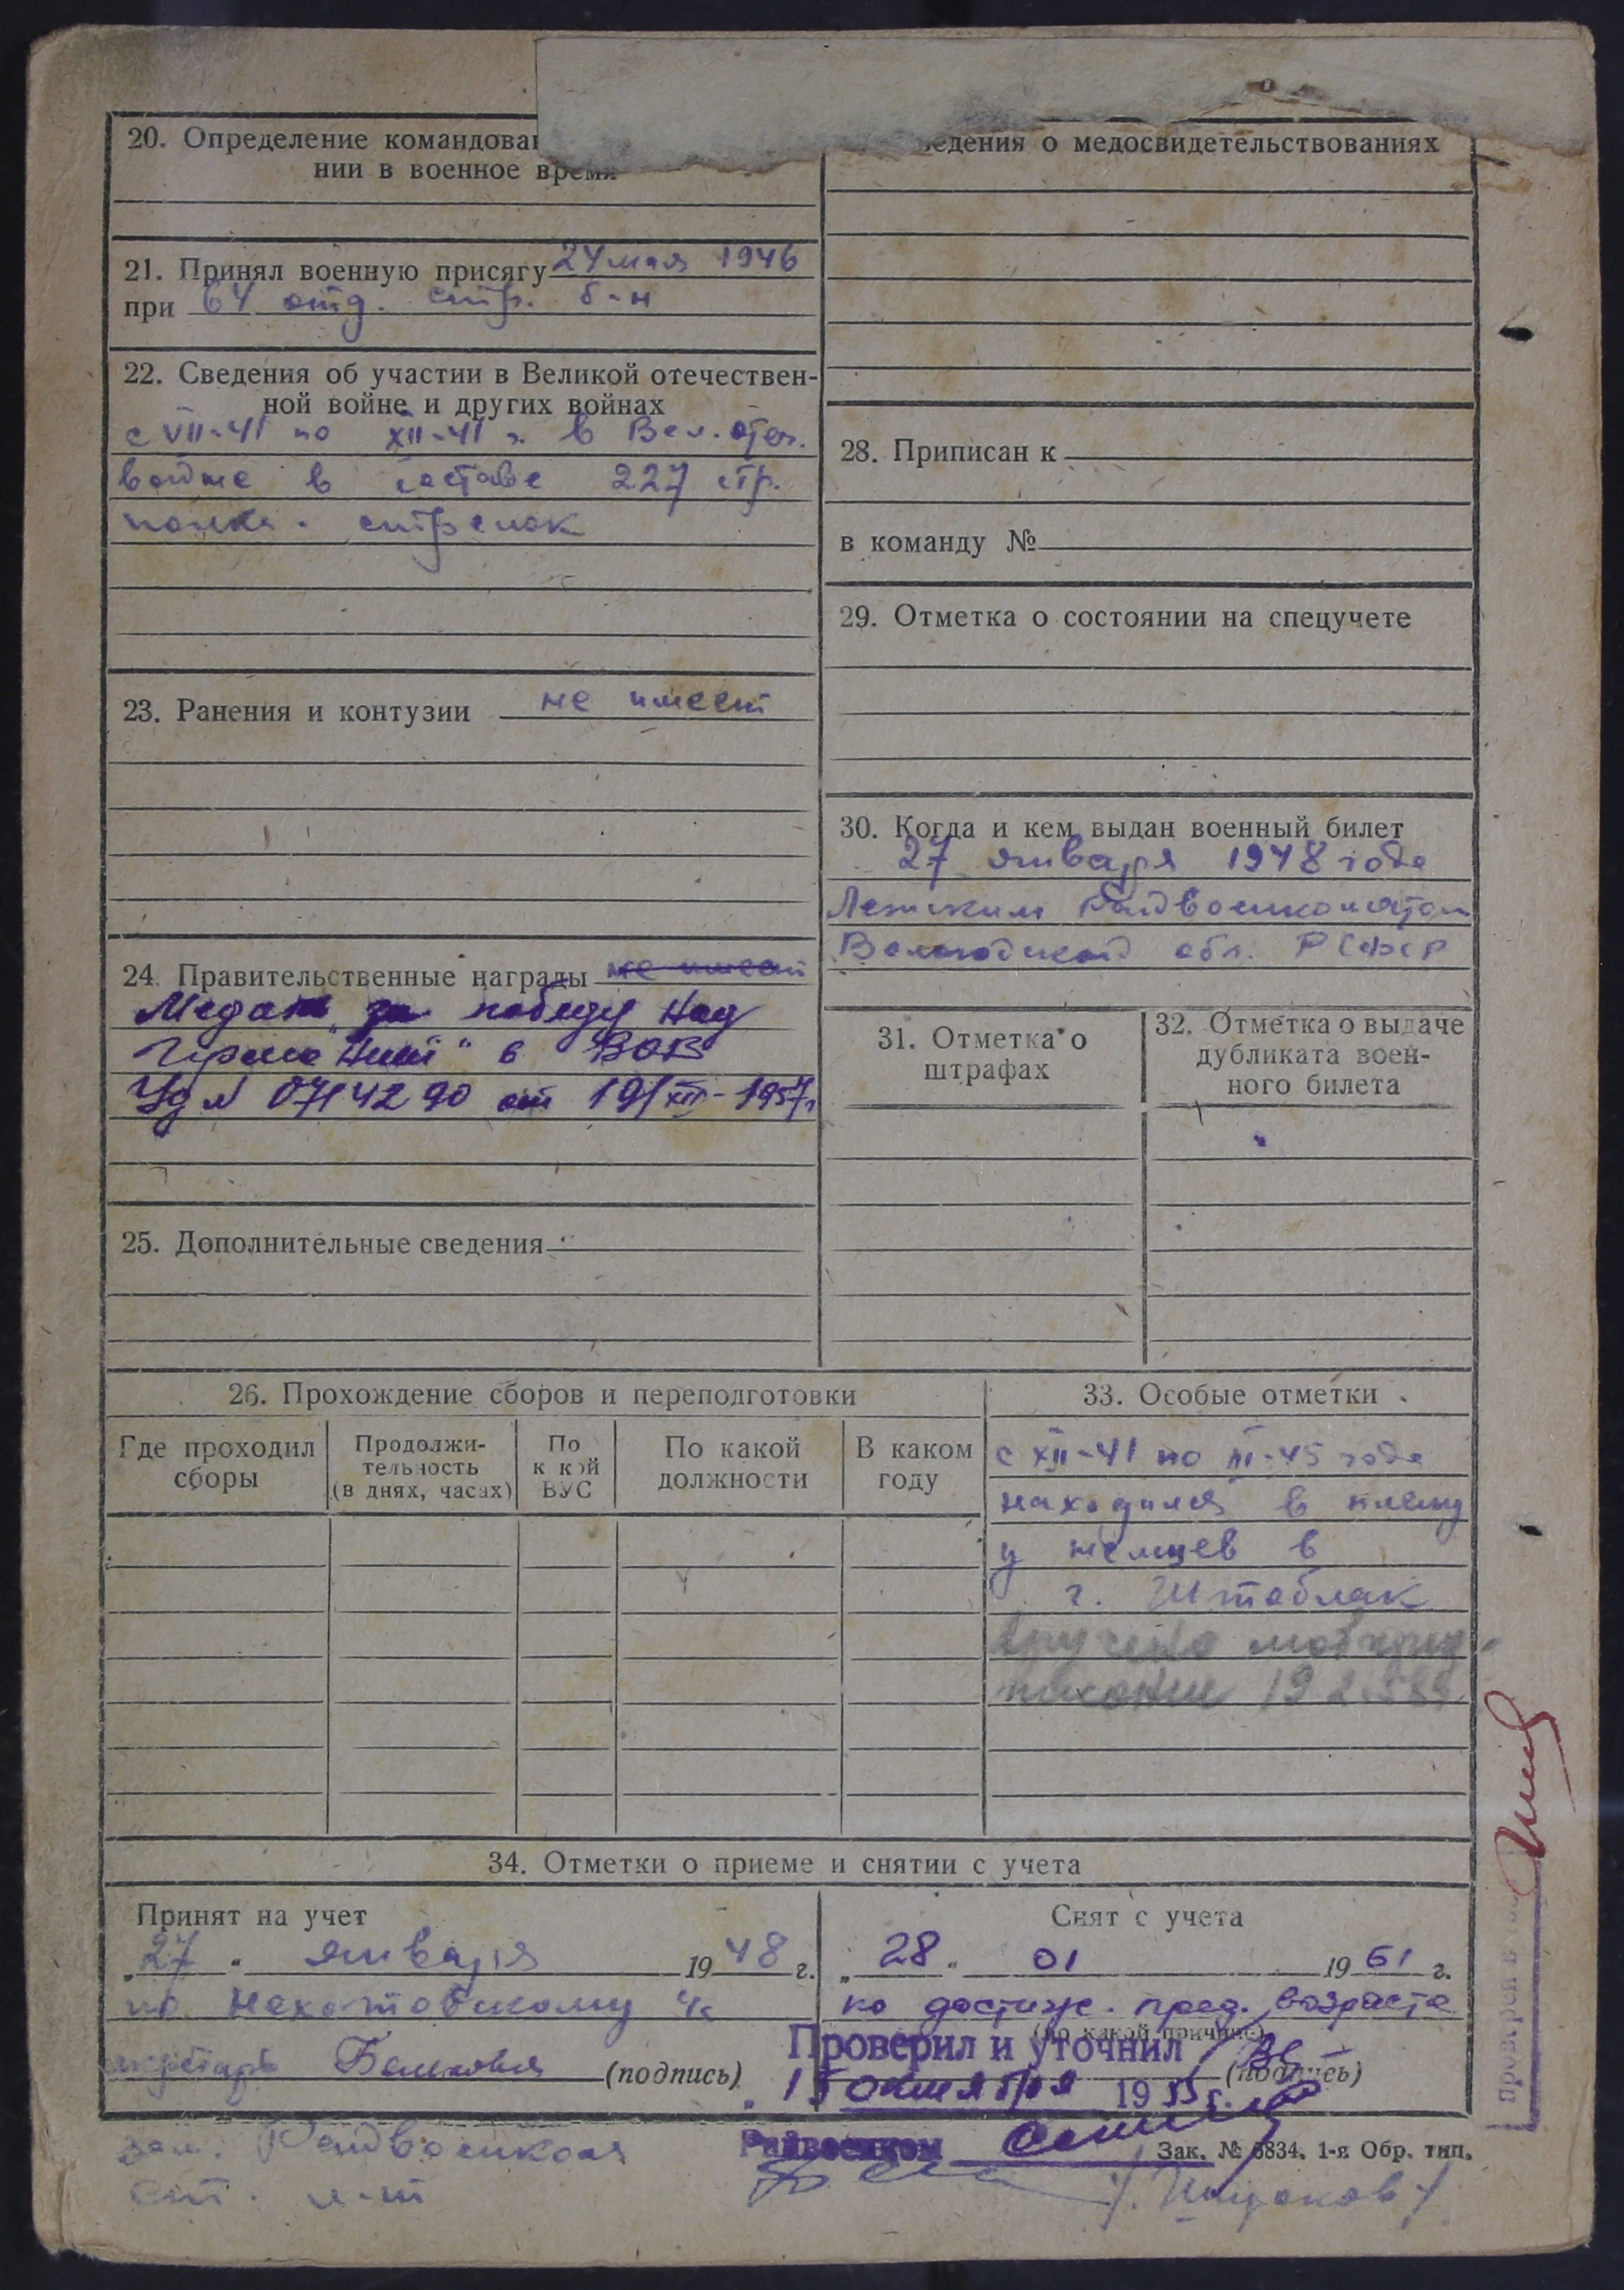 20. Определение командован
нии в военное время
21. Принял военную присягу 24 мая 1946
при 64 отд. стр. б-н
22. Сведения об участии в Великой отечествен-
ной войне и других войнах
с VII-41 по XII-41 г. в Вел. отеч.
войне в составе 227 стр.
полка. стрелок
23. Ранения и контузии не имеет
24. Правительственные награды не имеет
Медаль за победу над
Германией" в ВОВ
Уд № 0714290 от 19/XII-1957г
25. Дополнительные сведения
едения о медосвидетельствованиях
28. Приписан к
в команду №
29. Отметка о состоянии на спецучете
30. Когда и кем выдан военный билет
27 января 1948 года
Лежским Райвоенкоматом
Вологодской обл. РСФСР
31. Отметка о
штрафах
32. Отметка о выдаче
дубликата воен-
ного билета
26. Прохождение сборов и переподготовки
Где проходил
сборы
Продолжи-
тельность
(в днях, часах)
По
к кой
ВУС
По какой
должности
В каком
году
33. Особые отметки
с XII-41 по III-45 года
находился в плену
у немцев в
г. Штаблак
вручено мобпред-
писание 19
34. Отметки о приеме и снятии с учета
Принят на учет
"27" января 1948 г.
по
секретарь (подпись)
зам. Райвоенкома
ст. л-т
Снят с учета
"28" 01 1961 г.
по достиж. пред. возраста
(по какой причине)
(подпись)
Проверил и уточнил
"15 октября 1955 г.
Райвоенком
Зак. № 6834. 1-я Обр. тип.
проверен в